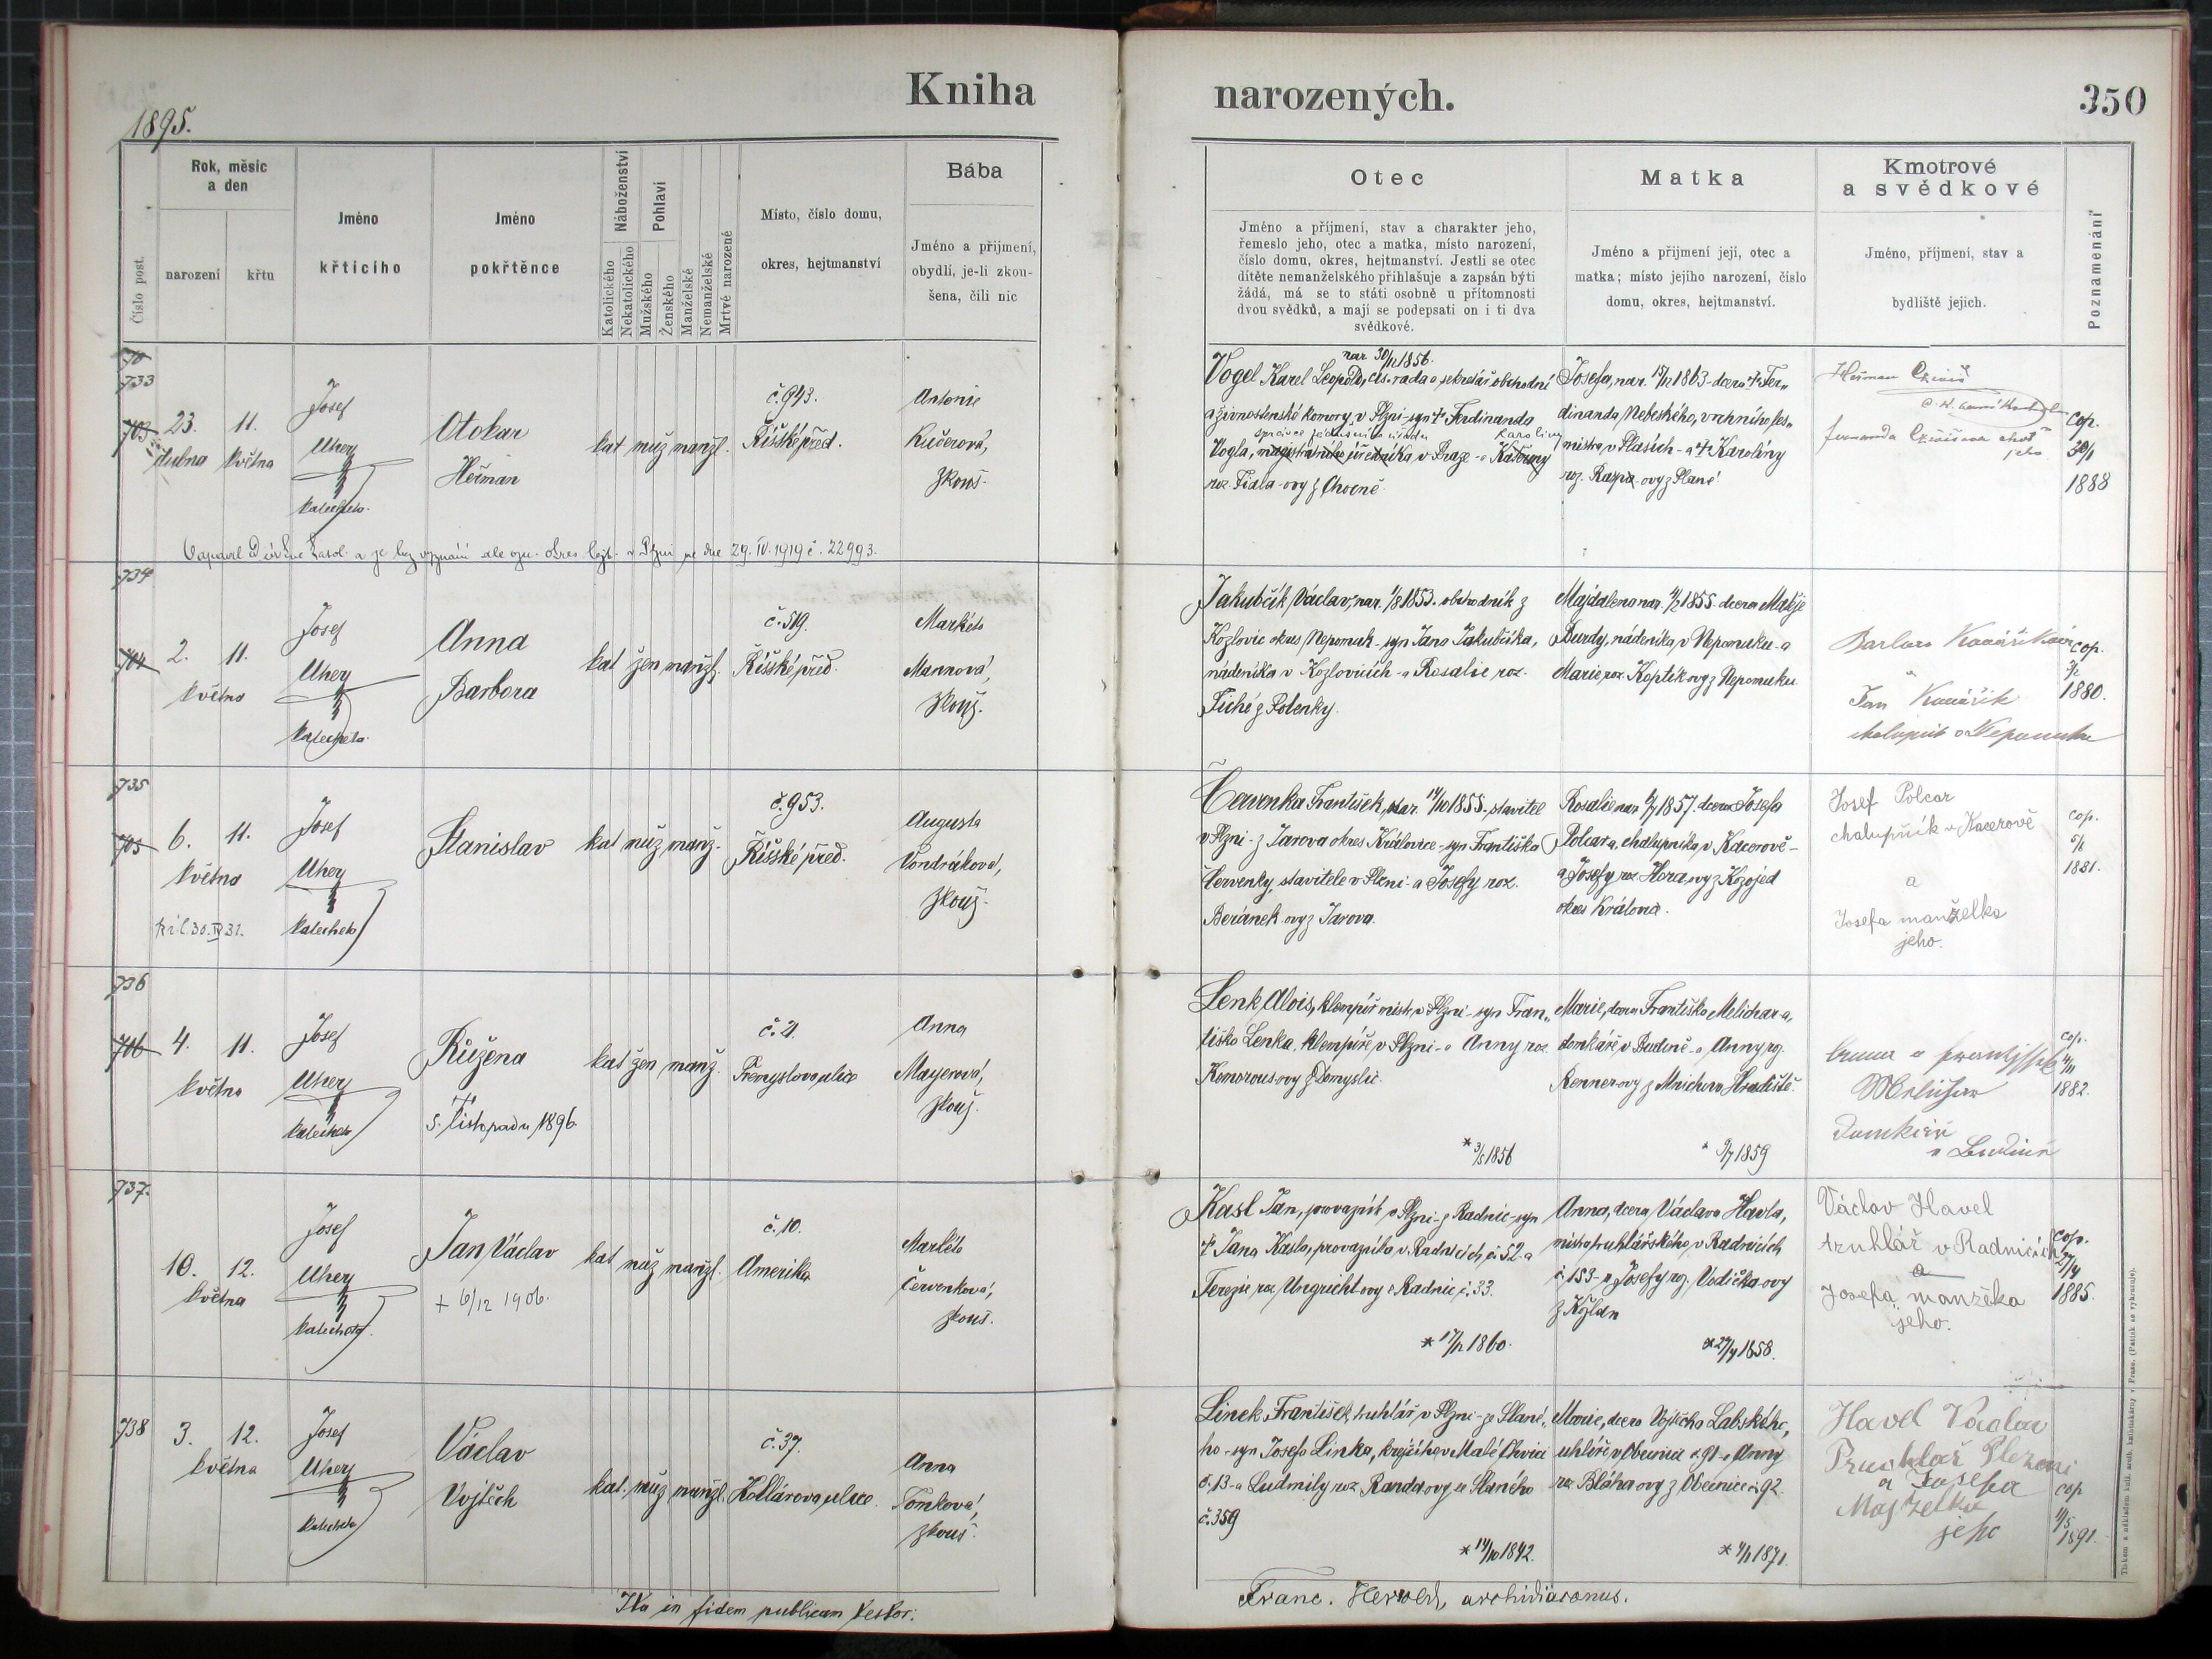 Kniha
narozených.
350
1895.
Číslo post.
Rok, měsíc
a den
narození
křtu
Jméno
křtícího
Jméno
pokřtěnce
Náboženství
Katolického
Nekatolického
Pohlaví
Mužského
Ženského
Manželské
Nemanželské
Mrtvé narozené
Místo, číslo domu,
okres, hejtmanství
Bába
Jméno a příjmení,
obydlí, je-li zkou-
šena, čili nic
Otec
Jméno a příjmení, stav a charakter jeho,
řemeslo jeho, otec a matka, místo narození,
číslo domu, okres, hejtmanství. Jestli se otec
dítěte nemanželského přihlašuje a zapsán býti
žádá, má se to státi osobně u přítomnosti
dvou svědků, a mají se podepsati on i ti dva
svědkové.
Matka
Jméno a příjmení její, otec a
matka; místo jejího narození, číslo
domu, okres, hejtmanství.
Kmotrové
a svědkové
Jméno, příjmení, stav a
bydliště jejich.
Poznamenání
733
703
23.
dubna
11.
května
Josef
Uher
katecheta.
Otokar
Heřman
kat muž manžl.
č. 943.
Říšské před.
Antonie
Kučerová,
zkouš.
nar 30/11 1856.
Vogel Karel Leopold, cís. rada a sekretář obchodní
a živnostenské komory v Plzni - syn † Ferdinanda
Karoliny
Vogla, magistratního úředníka v Praze - a Kateřiny
roz. Fiala-ovy z Chocně
Josefa, nar. 1863 - dcera † Fer-
dinanda Nebeského, vrchního les-
mistra v Plasích - a † Karolíny
roz. ovy z Plané
Heřman
jeho
cop.
30/1
1888
Okres. hejt. v Plzni ze dne 29. IV. 1919 č. 22993.
734
704
2.
května
11.
Josef
Uher
katecheta.
Anna
Barbora
kat žen manžl.
č. 519.
Říšské před.
Markéta
Mannová,
zkouš.
Jakubčík Václav, nar. 1/8 1853. obchodník z
Kozlovic okres Nepomuk - syn Jana Jakubčíka,
nádeníka v Kozlovicích - a Rosalie roz.
Tiché z Polenky.
Majdalena nar. 1855. dcera Matěje
Burdy, nádeníka v Nepomuku - a
Marie roz. Koptík-ovy z Nepomuku
Barbora Kovaříková
Jan Kovářik
chalupník v Nepomuku
cop.
1880.
735
705
6.
května
11.
Josef
Uher
katecheta
Stanislav
kat muž manž.
č. 953.
Říšské před.
Augusta
Vondráková,
zkouš.
Červenka František, nar. 14/10 1855 - stavitel
v Plzni - z Jarova okres Kralovice - syn Františka
Červenky, stavitele v Plzni - a Josefy roz.
Beránek-ovy z Jarova.
Rosalie nar. 1857. dcera Josefa
Polcara, chalupníka v Kacerově -
a Josefy roz. Hora-ovy z Kozojed
okres Kralovic.
Josef Polcar
chalupník v Kacerově
a
Josefa manželka
jeho.
cop.
1881.
736
706
4.
května
11.
Josef
Uher
katecheta
Růžena
†
5. listopadu 1896.
kat žen manž.
č. 21
Přemyslova ulice
Anna
Mayerová,
zkouš.
Lenk Alois, klempíř. mistr v Plzni - syn Fran-
tiška Lenka, klempíře v Plzni - a Anny roz.
Komorous-ovy z Domyslic.
* 3/5 1856
Marie, dcera Františka Melichar-a,
domkáře v Budině - a Anny roz.
Renner-ovy z Mnichova Hradiště.
* 1859
Anna a
Domkář
cop.
1882.
737.
10.
května
12.
Josef
Uher
katecheta.
Jan Václav
+ 6/12 1906.
kat muž manžl.
č. 10.
Amerika
Markéta
Červenková,
zkouš.
Kasl Jan, provazník v Plzni - z Radnic - syn
† Jana Kasla, provazníka v Radnicích č. 52. a
Terezie roz. Ungricht-ovy z Radnic č. 33.
* 17/12 1860.
Anna, dcera Václava Havla,
mistra truhlářského v Radnicích
č. 153 - a Josefy roz. Vodička-ovy
z Kožlan
* 27/4 1858.
Václav Havel
truhlář v Radnicích
a
Josefa manžěka
jeho.
cop.
27/4
1885.
738
3.
května
12.
Josef
Uher
katecheta
Václav
Vojtěch
kat. muž manžl.
č. 37.
Kollárova ulice
Anna
Tomková,
zkouš.
Linek František, truhlář v Plzni - ze Slané-
ho - syn Josefa Linka, krejčího v Malé
č. 13 - a Ludmily roz. Randa-ovy ze Slaného
č. 359
* 14/10 1842.
Marie, dcera Vojtěcha Labského,
uhlíře v Obecnici č. 91 - a Anny
roz. Bláha-ovy z Obecnice č. 92.
* 4/1 1871.
Havel Václav
Truchlař Plzeni
a Josefa
Majželka
jeho
cop
1891.
Ita in fidem publicam testor:
Franc. Herold, archidiaconus.